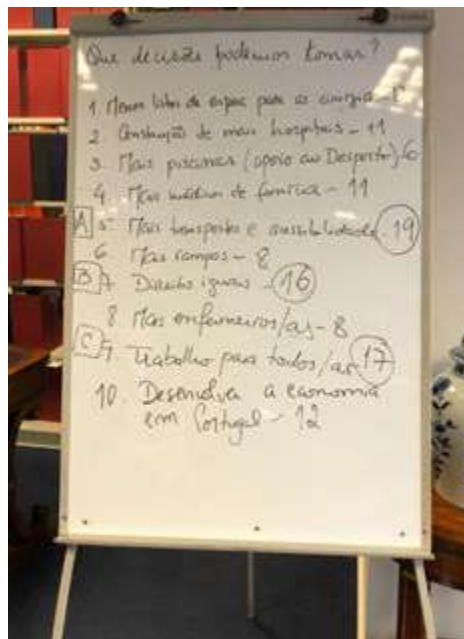 Que decisões podemos tomar?
1 Menos listas de espera para as cirurgias -
2 Construção de mais hospitais - 11
3 Mais piscinas (apoio ao Desporto) 6
4 Mais médicos de família - 11
A 5 Mais transportes e acessibilidade 19
6 Mais rampas - 8
B 7 Direitos iguais - 16
8 Mais enfermeiros/as - 8
C 9. Trabalho para todos/as 17
10. Desenvolver a economia
em Portugal - 12